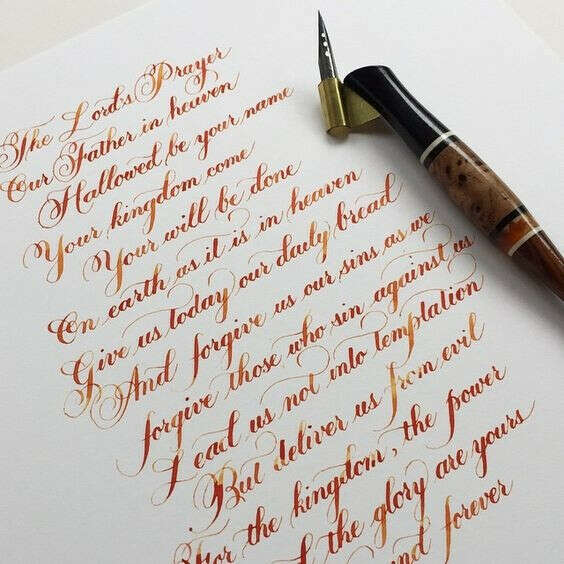 The Lord's Prayer
Our Father in heaven
Hallowed be your name
Your kingdom come
Your will be done
On earth as it is in heaven
Give us today our daily bread
And forgive us our sins as we
forgive those who sin against us
Lead us not into temptation
But deliver us from evil
For the kingdom, the power
the glory are yours
and forever